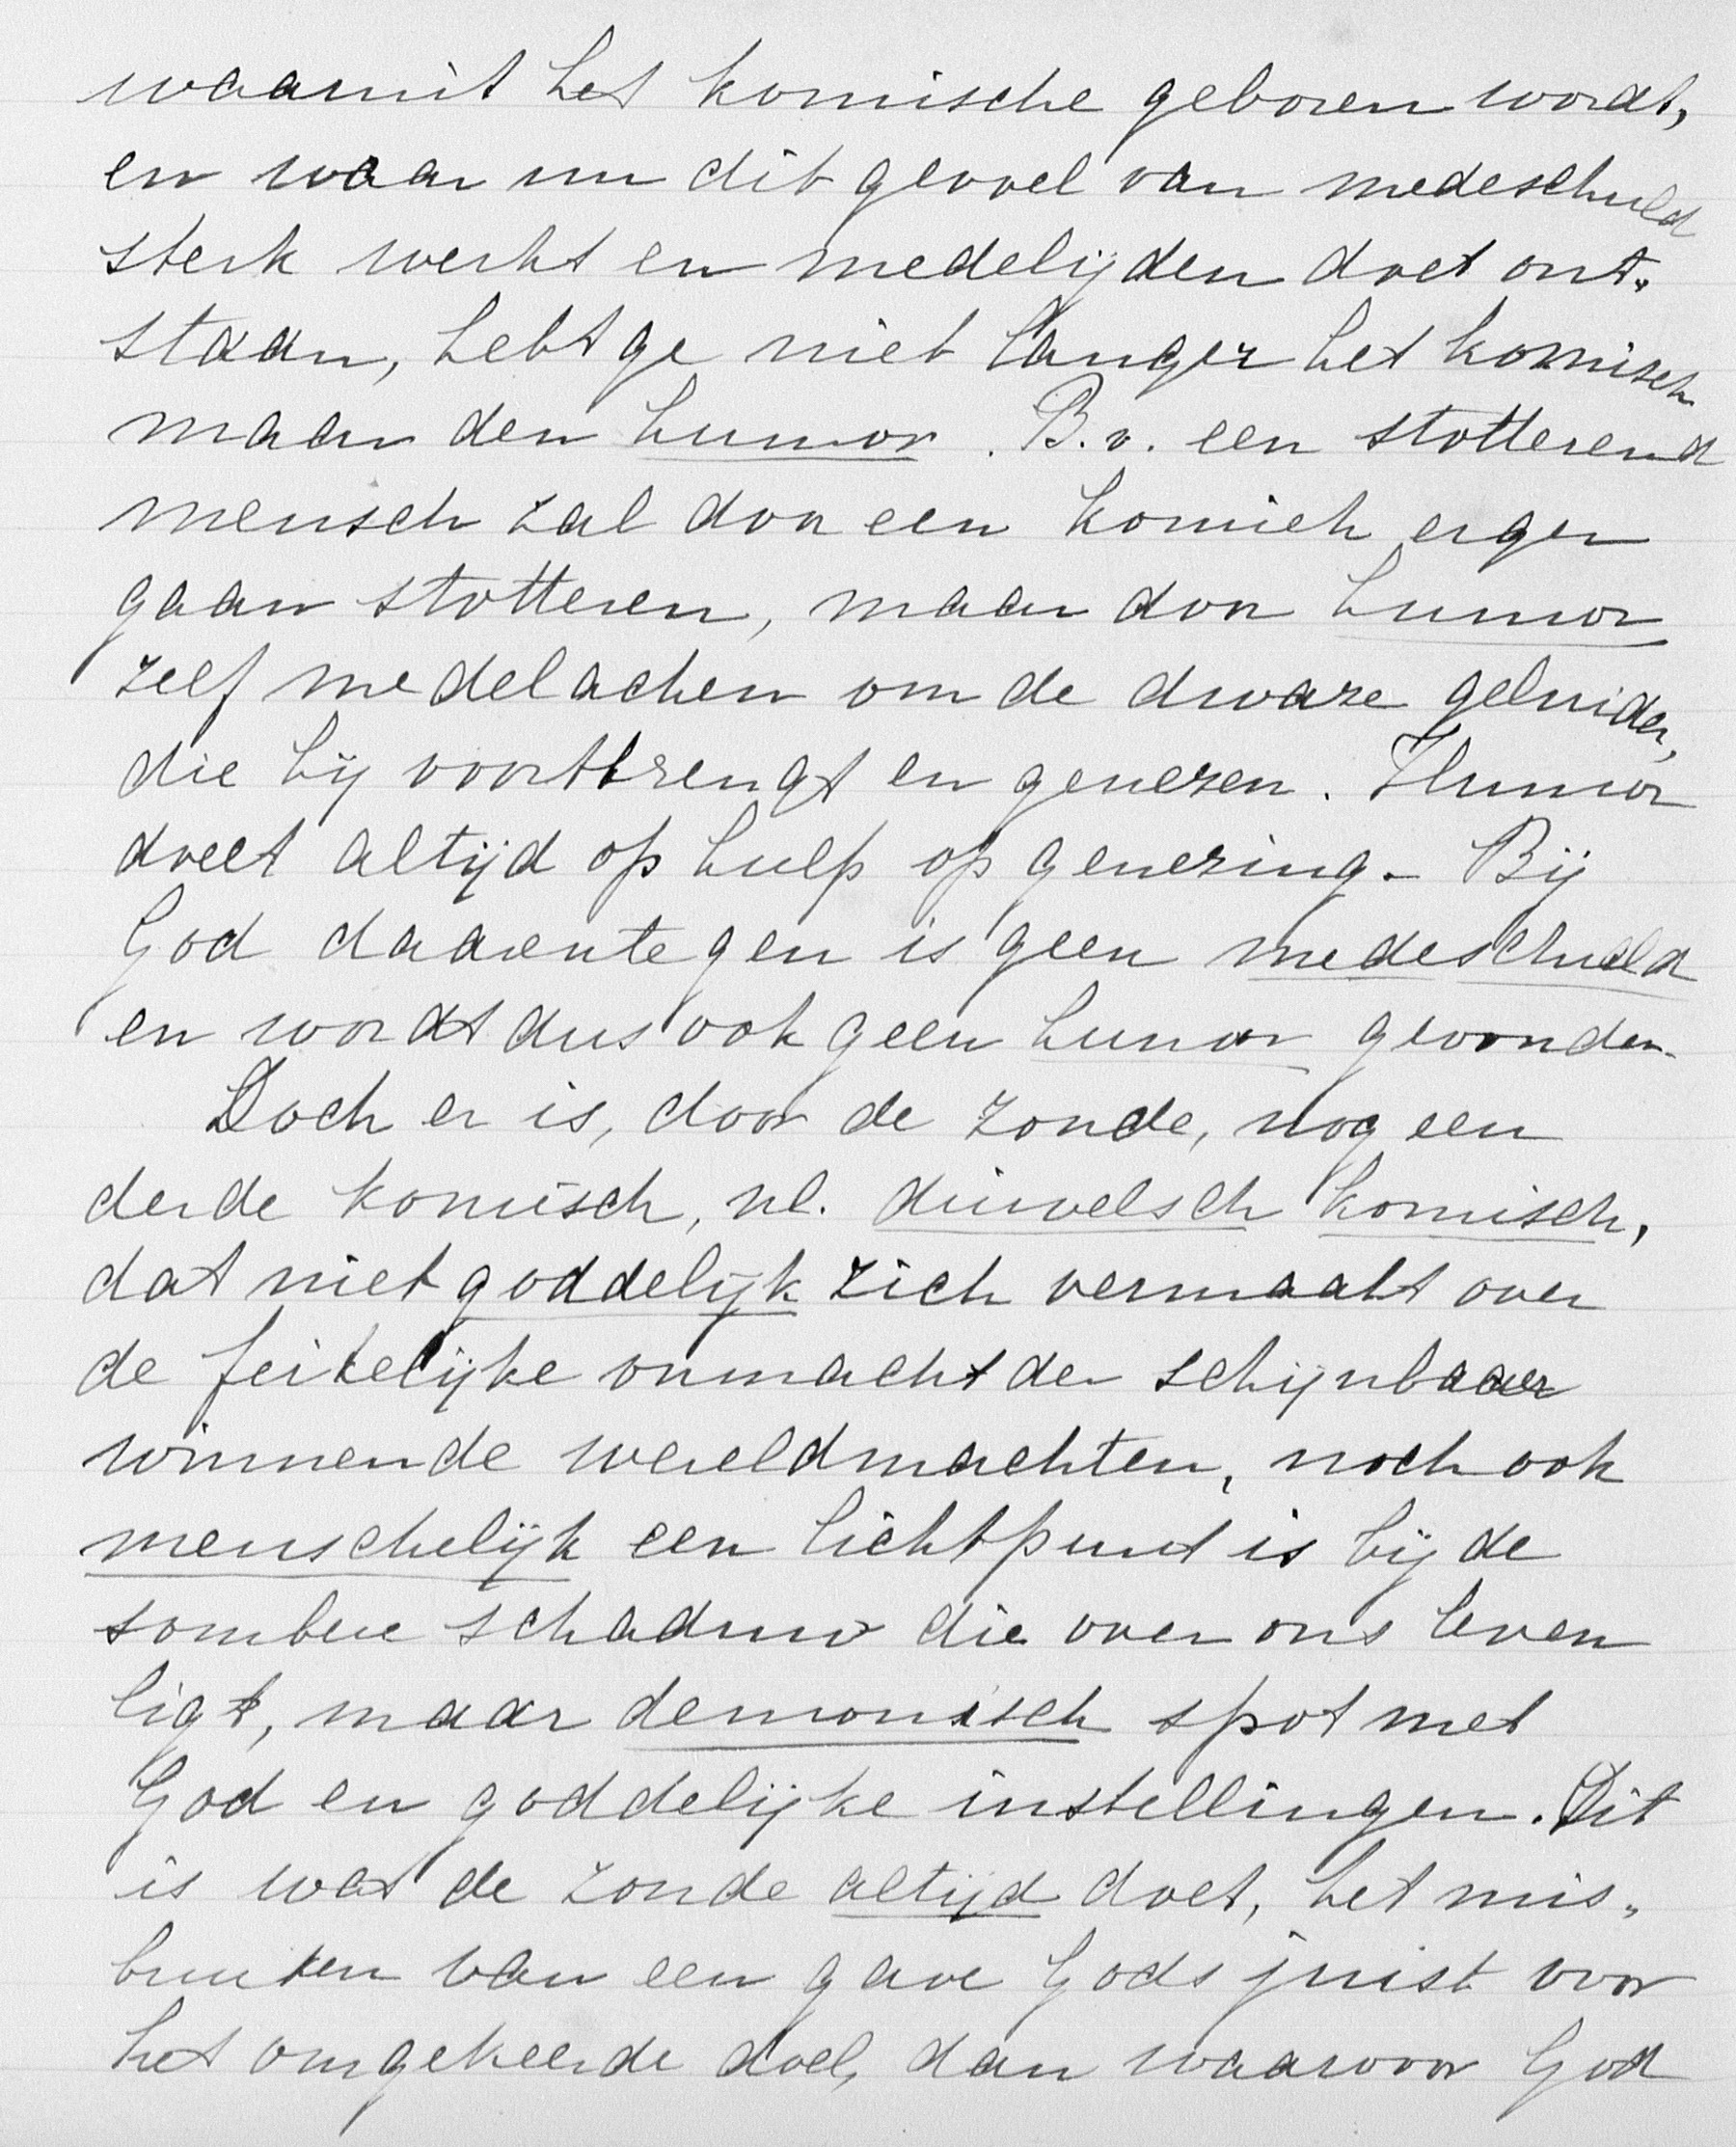 waaruit het komische geboren wordt,
en waar nu dit gevoel van medeschuld
sterk werkt en medelijden doet ont-
staan, hebt ge niet langer het komisch
maar den humor. B.v. een stotterend
mensch zal door een komiek erger
gaan stotteren, maar door humor
zelf medelachen om de dwaze geluiden,
die hij voortbrengt en genezen. Humor
doelt altijd op hulp op genezing. Bij
God daarentegen is geen medeschuld
en wordt dus ook geen humor gevonden.
Doch er is, door de zonde, nog een
derde komisch, nl. duivelsch komisch,
dat niet goddelijk zich vermaakt over
de feitelijke onmacht der schijnbaar
winnende wereldmachten, noch ook
menschelijk een lichtpunt is bij de
sombere schaduw die over ons leven
ligt, maar demonisch spot met
God en goddelijke instellingen. Dit
is wat de zonde altijd doet, het mis-
bruiken van een gave Gods juist voor
het omgekeerde doel, dan waarvoor God